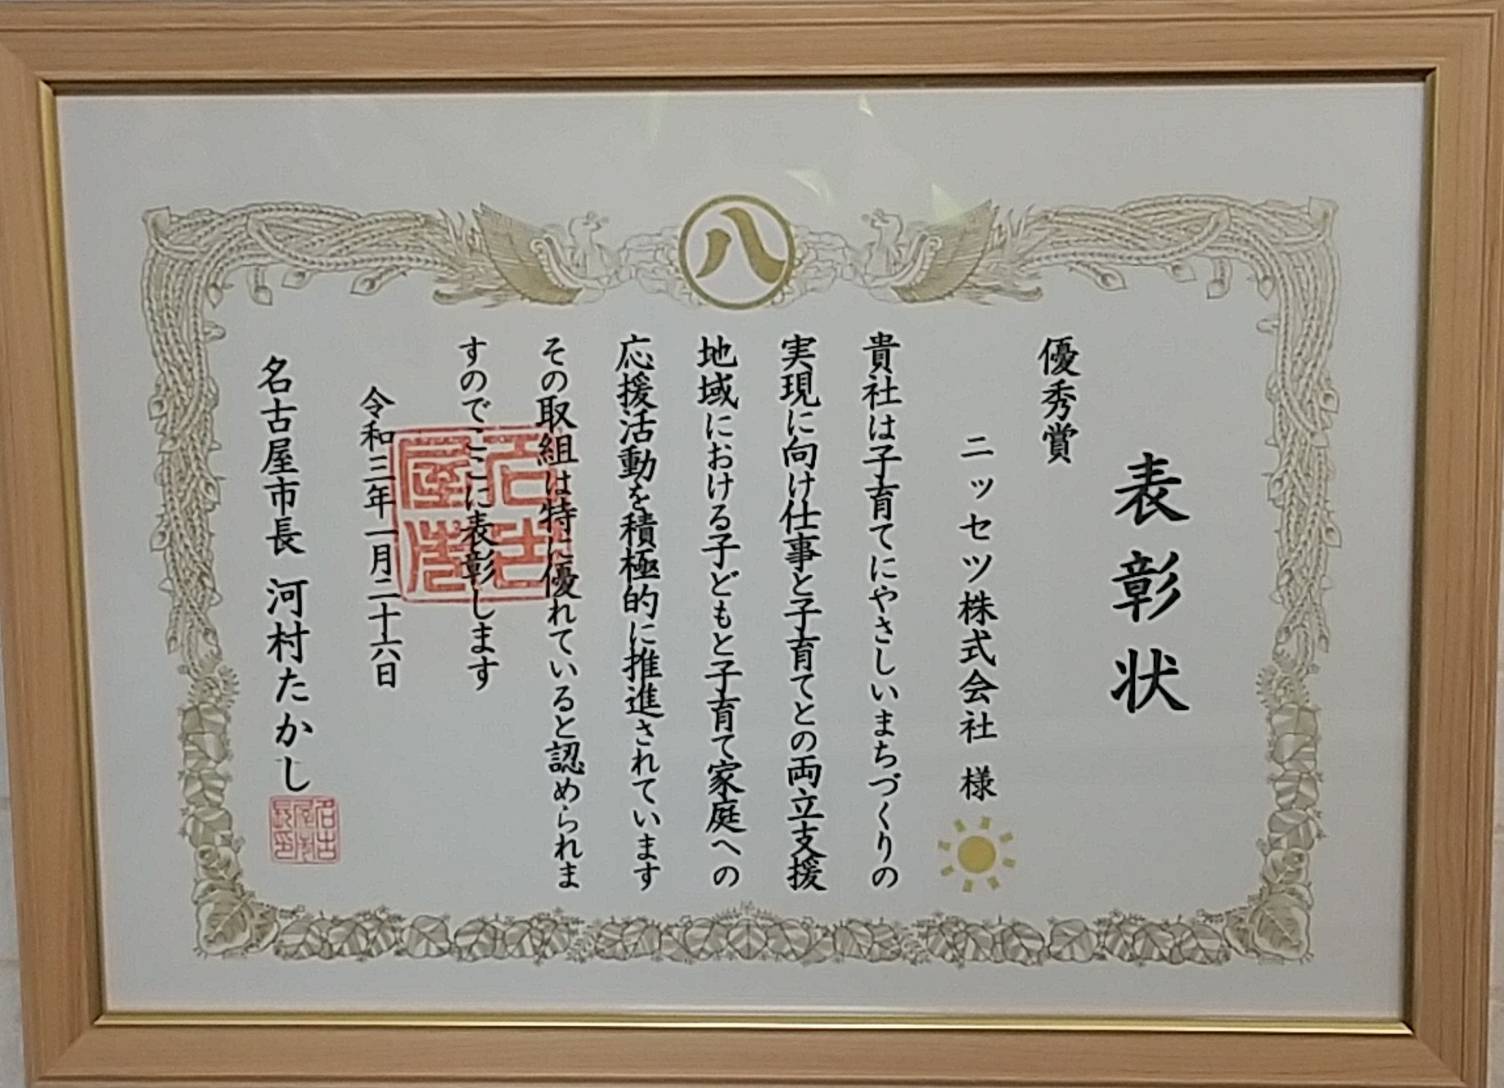 八
表彰状
優秀賞
ニッセツ株式会社 様
貴社は子育てにやさしいまちづくりの
実現に向け仕事と子育てとの両立支援
地域における子どもと子育て家庭への
応援活動を積極的に推進されています
その取組は特に優れていると認められま
すのでここに表彰します
令和三年一月二十六日
名古屋市長 河村たかし